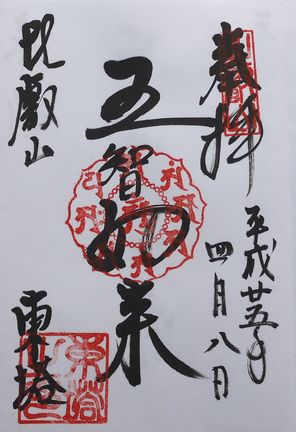 奉拝
平成廿五年
四月八日
五智如来
比叡山
東塔